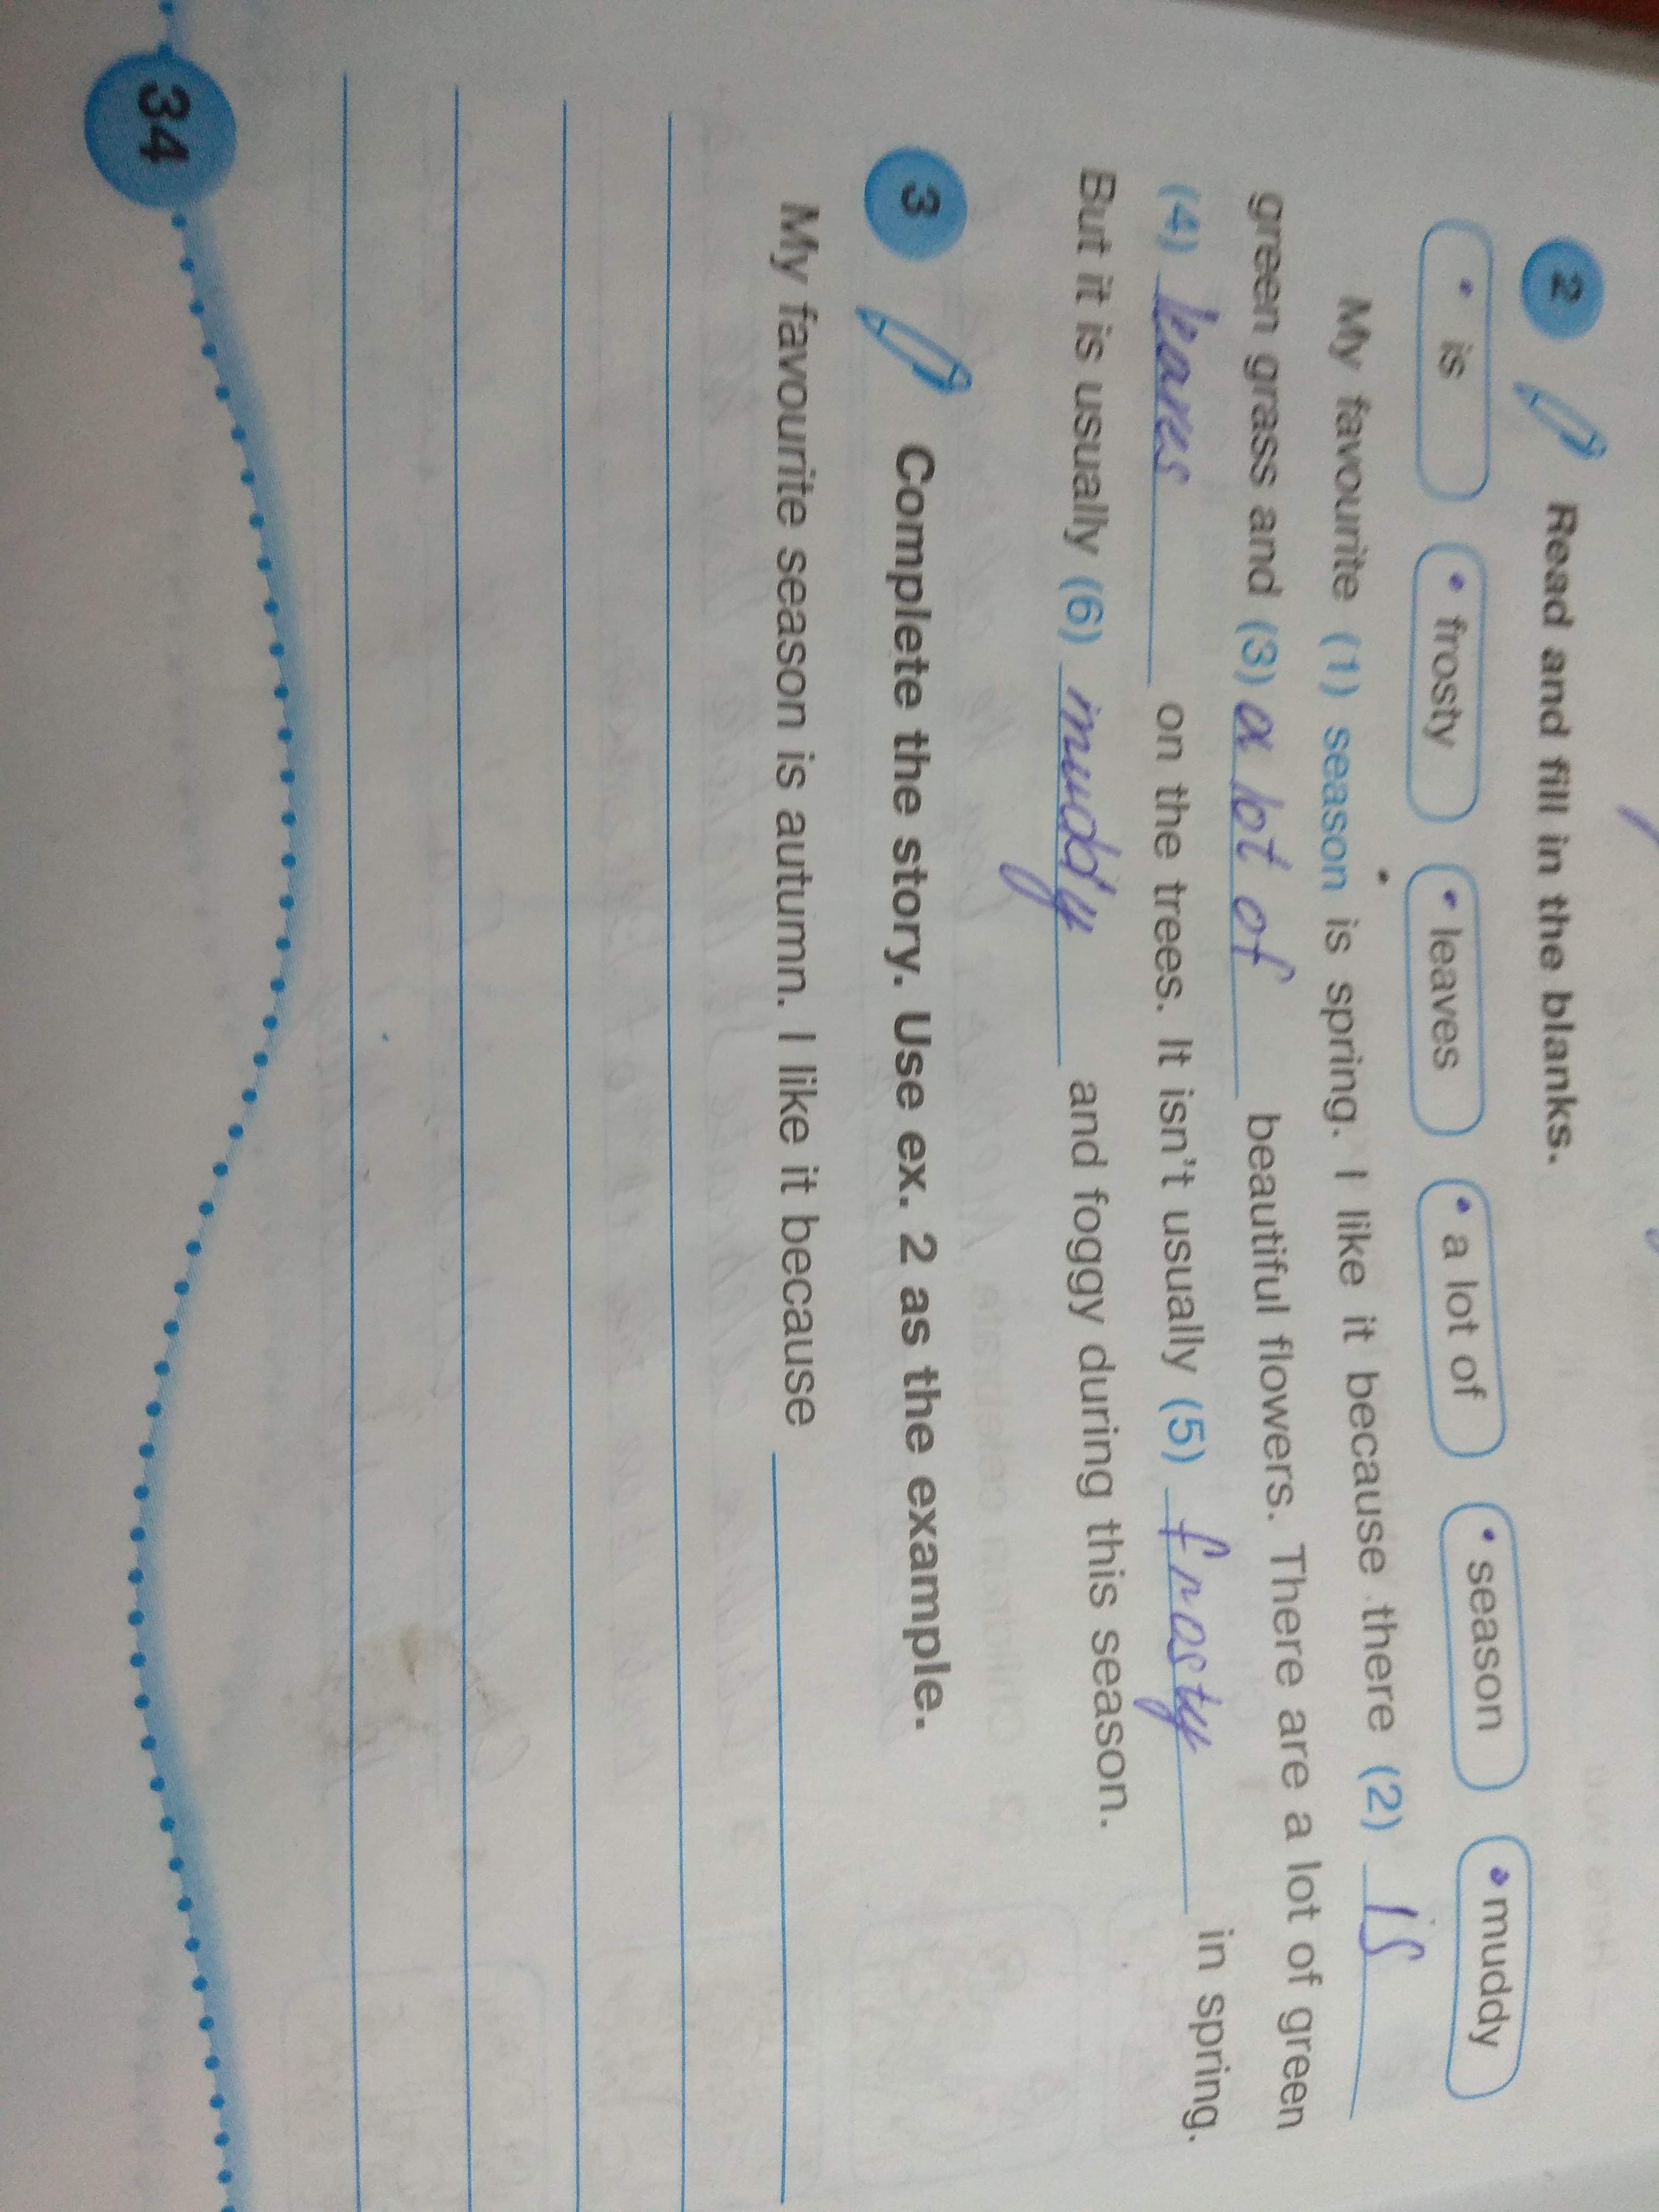 2 Read and fill in the blanks.
• is • frosty • leaves • a lot of • season • muddy
My favourite (1) season is spring. I like it because there (2) is
green grass and (3) a lot of beautiful flowers. There are a lot of green
(4) leaves on the trees. It isn't usually (5) frosty in spring.
But it is usually (6) muddy and foggy during this season.
3 Complete the story. Use ex. 2 as the example.
My favourite season is autumn. I like it because
34